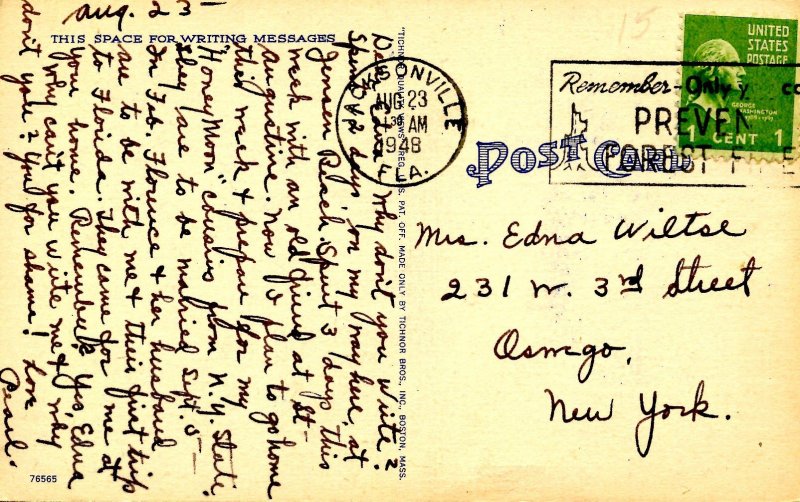 Aug. 23-
THIS SPACE FOR WRITING MESSAGES
Dear Edna: Why don't you write?
Spent 2 days on my way here, at
Jensen Beach. Spent 3 days this
week with an old friend at St-
augustine. Now I plan to go home
this week & prepare for my
"HoneyMoon" cousins from N.Y. State.
They are to be married Sept. 5-
In Feb. Florence & her husband
are to be with me & their first trip
to Florida. They came for me at
your home. Remember? Yes, Edna
why can't you write me & why
don't you? You for shame! Love
Pearl.
76565
"TICHNOR QUALITY VIEWS" REG. U. S. PAT. OFF. MADE ONLY BY TICHNOR BROS., INC., BOSTON, MASS.
JACKSONVILLE
AUG 23
AM
1948
FLA.
15
Remember-Only
PREVEN
FOREST FI E
UNITED
STATES
POSTAGE
GEORGE
WASHINGTON
1 CENT 1
POST CARD
Mrs. Edna Wiltse
231 W. 3rd Street
Oswego,
New York.